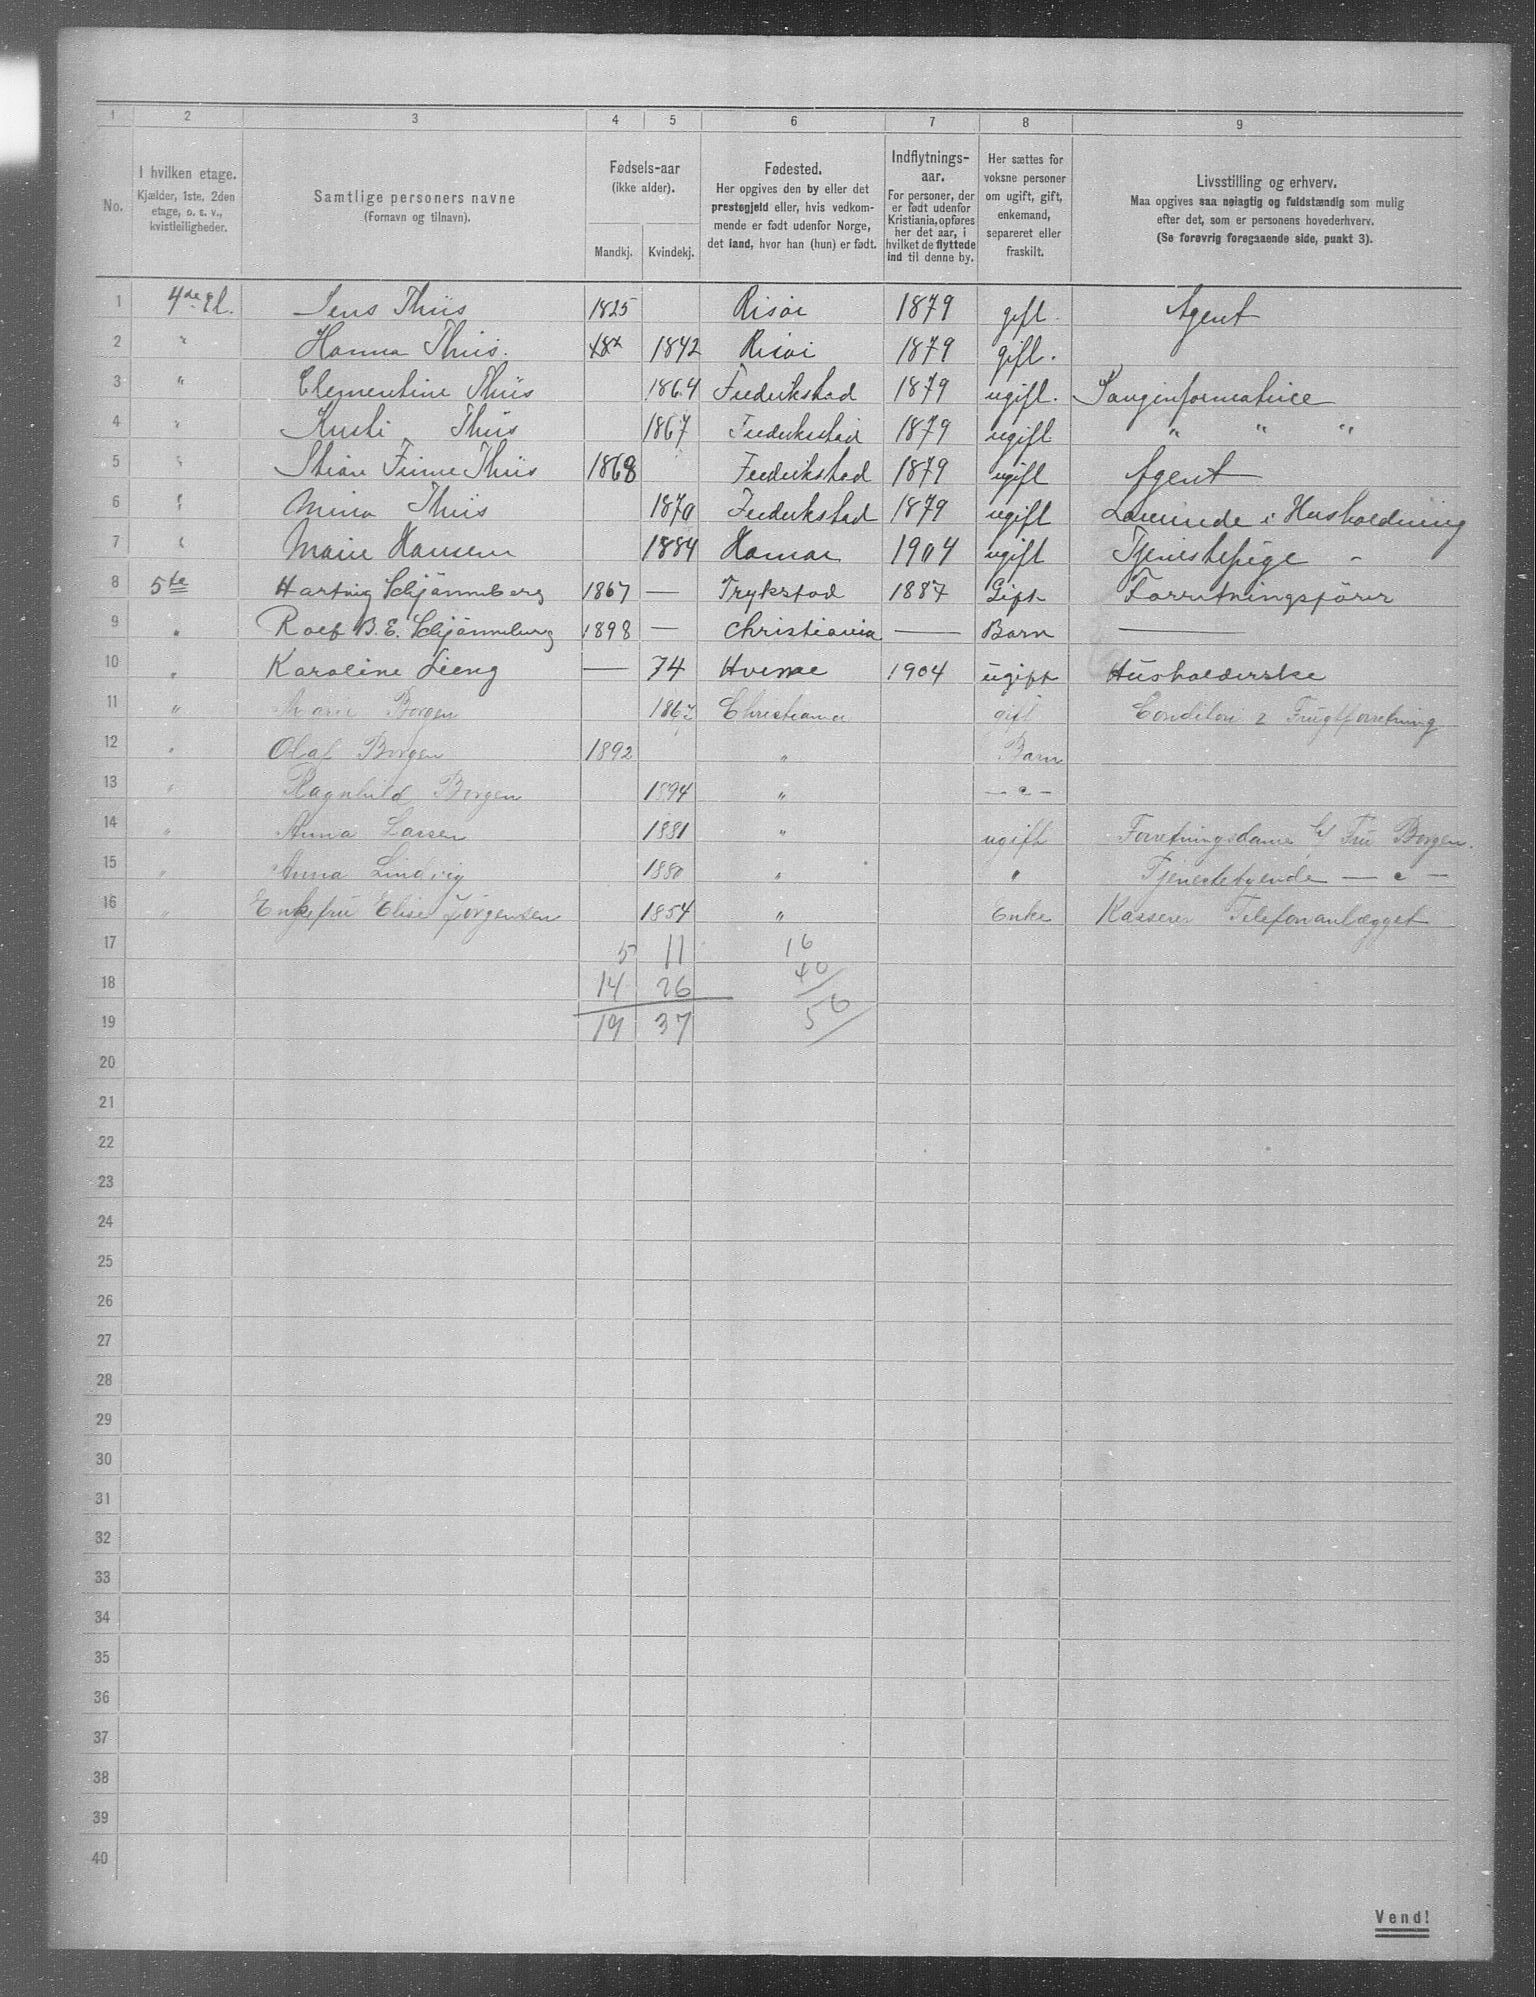 1 2 3 4 5 6 7 8 9
No.
I hvilken etage.
Kjælder, 1ste, 2den
etage, o. s. v.,
kvistleiligheder.
Samtlige personers navne
(Fornavn og tilnavn).
Fødsels-aar
(ikke alder).
Mandkj. Kvindekj.
Fødested.
Her opgives den by eller det
prestegjeld eller, hvis vedkom-
mende er født udenfor Norge,
det land, hvor han (hun) er født.
Indflytnings-
aar.
For personer, der
er født udenfor
Kristiania, opføres
her det aar, i
hvilket de flyttede
ind til denne by.
Her sættes for
voksne personer
om ugift, gift,
enkemand,
separeret eller
fraskilt.
Livsstilling og erhverv.
Maa opgives saa nøiagtig og fuldstændig som mulig
efter det, som er personens hovederhverv.
(Se forøvrig foregaaende side, punkt 3).
1 4de Et. Jens Thiis 1825 Risør 1879 gift. Agent
2 " Hanna Thiis. 1842 Risør 1879 gift.
3 " Clementine Thiis 1864 Frederikstad 1879 ugift.
4 " Thiis 1867 Frederikstad 1879 ugift " " "
5 " Stian Finne Thiis 1868 Frederikstad 1879 ugift Agent
6 " Mina Thiis 1870 Frederikstad 1879 ugift i Husholdning
7 " Marie Hansen 1884 Hamar 1904 ugift Tjenestepige -
8 5te Hartvig Schjønneberg 1867 — Trykstad 1887 Gift Forretningsförer
9 " Rolf B. E. Schjønneberg 1898 — Christiania — Barn —
10 " Karoline Lieng — 74 1904 ugift Husholderske
11 " Marie Borgen 1867 Christiania gift Conditori & Frugtforretning
12 " Olaf Borgen 1892 " Barn
13 " Ragnhild Borgen 1894 " — " —
14 " Anna Larsen 1881 " ugift Forretningsdame Fru Borgen.
15 " Anna Lindvig 1880 " " Tjenestetyende — " —
16 " Enkefru Elise Jörgensen 1854 " Enke Kasserer Telefonanlægget
17 5 11 16
18 14 26 40
19 19 37 56
20
21
22
23
24
25
26
27
28
29
30
31
32
33
34
35
36
37
38
39
40
Vend!